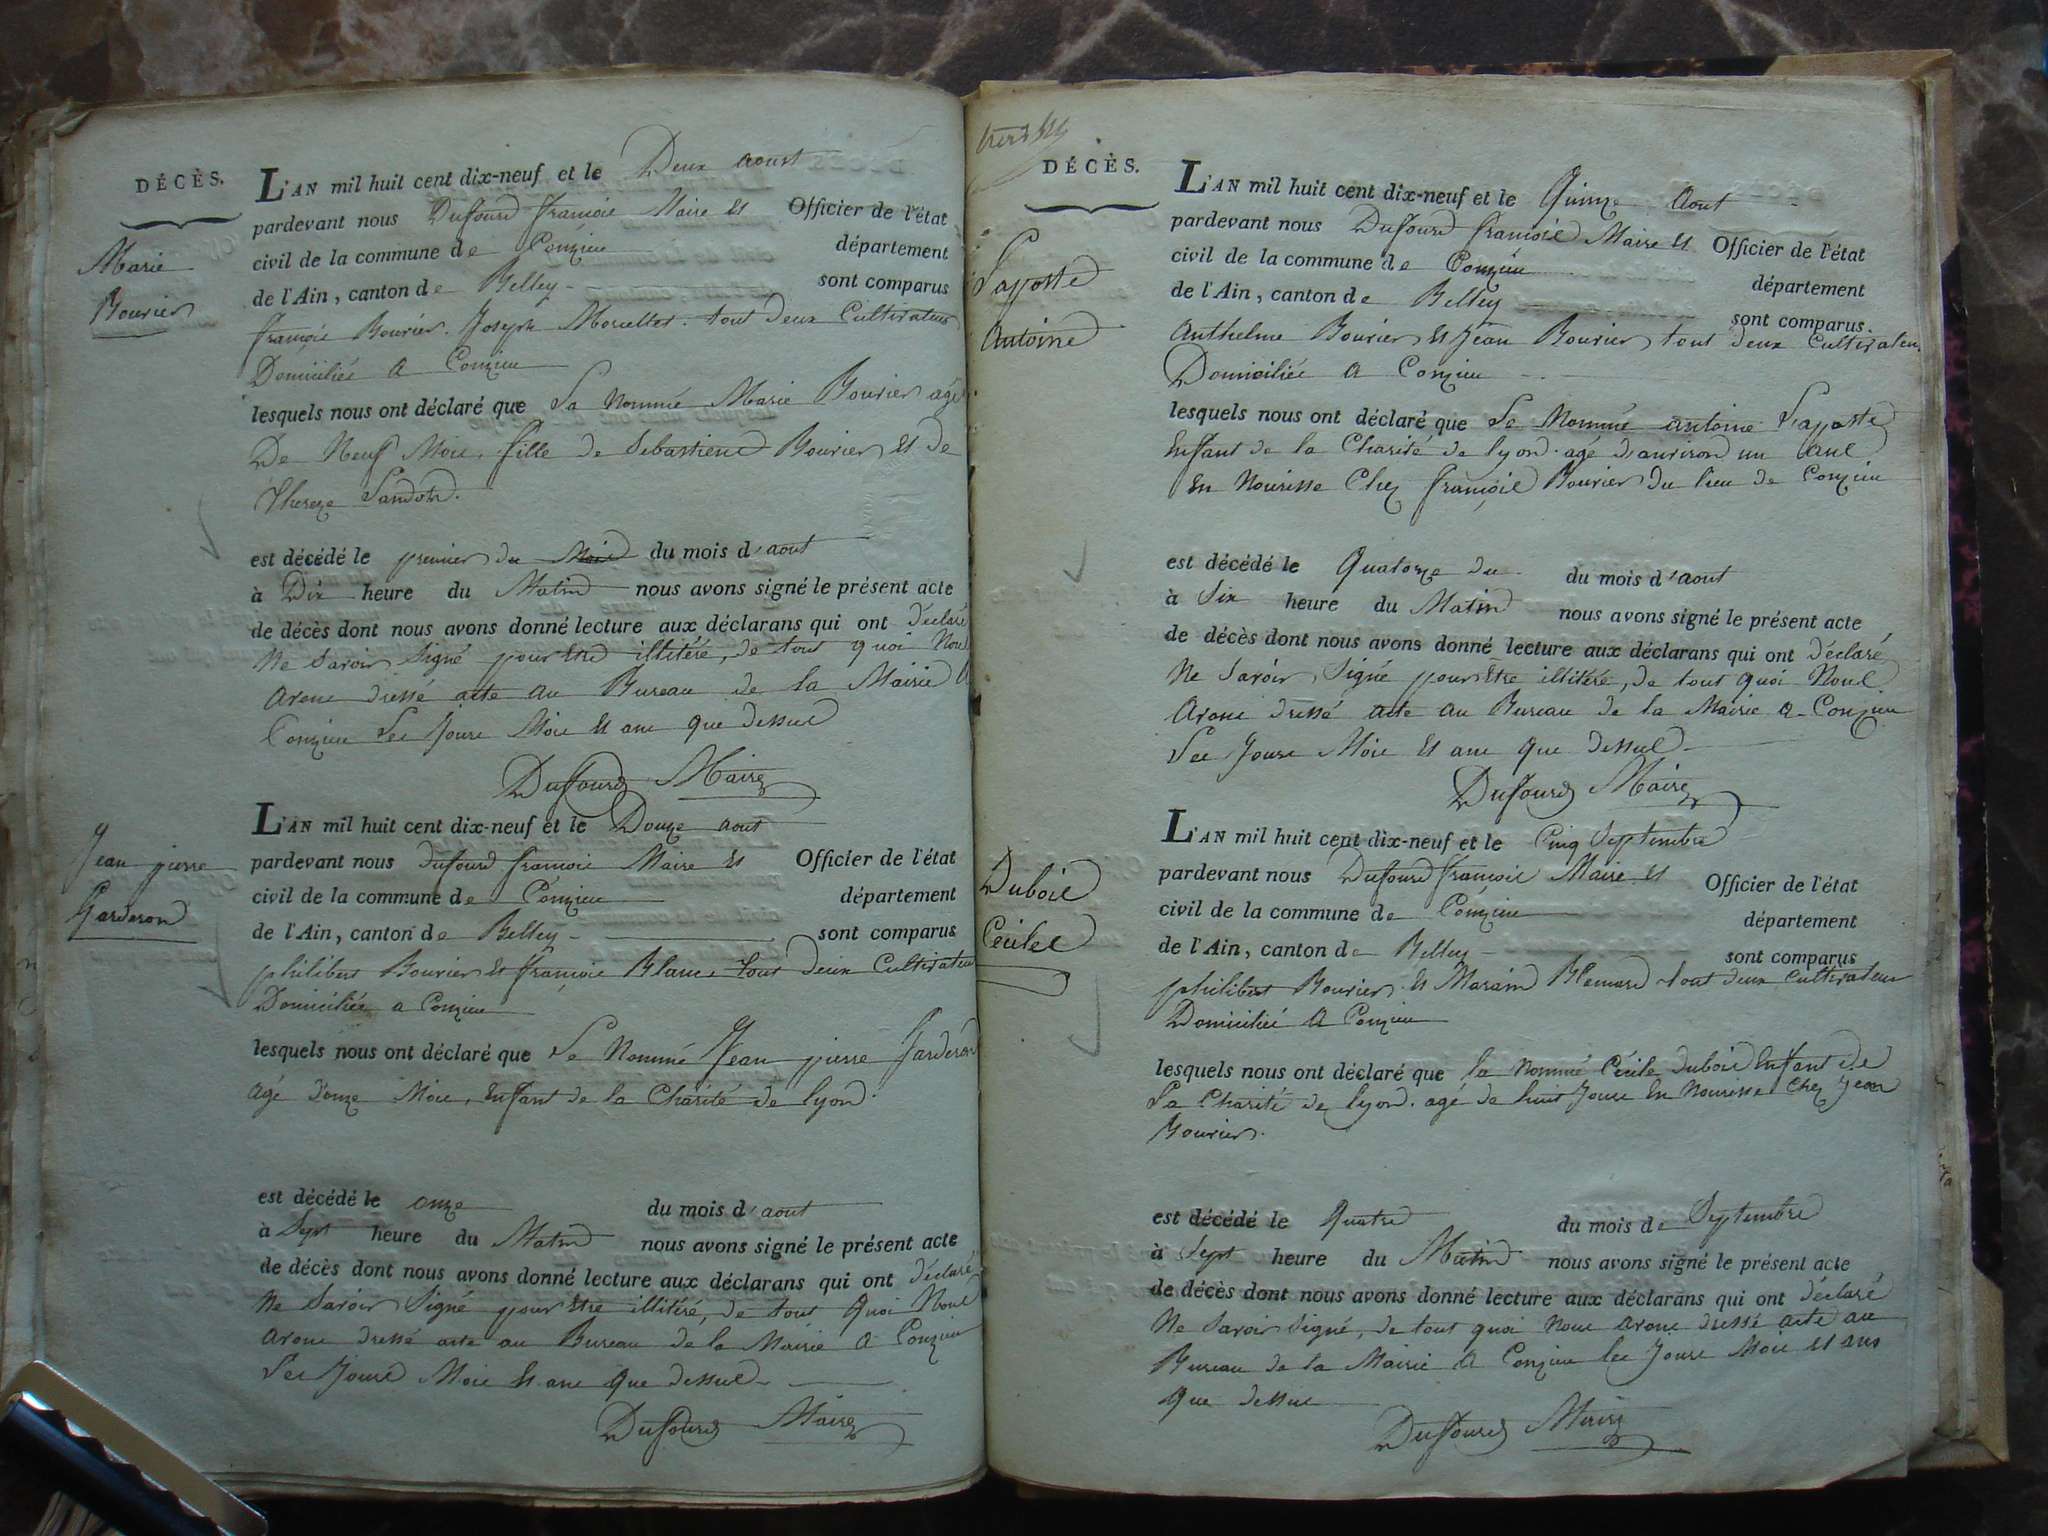 DÉCÈS.
Marie
Bourier
L'AN mil huit cent dix-neuf et le Deux aoust
pardevant nous Duffourd françois Maire et Officier de l'état
civil de la commune de Conzieu département
de l'Ain, canton de Belley sont comparus
françois Bourier. Joseph tout deux Cultivateurs
Domiciliés a Conzieu
lesquels nous ont déclaré que La Nommé Marie Bourier agé
De Neuf Mois, fille de Sebastiend Bourier et de
Thereze
est décédé le premier du Mois du mois d'aout
à Dix heure du Matin nous avons signé le présent acte
de décès dont nous avons donné lecture aux déclarans qui ont déclaré
Ne Savoir Signé pour Etre illitéré, de tout quoi Nous
avons dressé acte au Bureau de la Mairie a
Conzieu Les Jours Mois et ans que dessus
Duffourd Maire
Jean pierre
Garderon
L'AN mil huit cent dix-neuf et le Douze aout
pardevant nous duffourd françois Maire et Officier de l'état
civil de la commune de Conzieu département
de l'Ain, canton de Belley sont comparus
philibert Bourier et françois Blanc tout deux Cultivateurs
Domiciliés a Conzieu
lesquels nous ont déclaré que Le Nommé Jean pierre Garderon
agé d'onze Mois, Enffant de la Charité de lyon.
est décédé le onze du mois d'aout
à Sept heure du Matin nous avons signé le présent acte
de décès dont nous avons donné lecture aux déclarans qui ont déclaré
Ne Savoir Signé pour Etre illitéré, de tout Quoi Nous
avons dressé acte au Bureau de la Mairie a Conzieu
Les Jours Mois et ans que dessus
Duffourd Maire
DÉCÈS.
Laposte
Antoine
L'AN mil huit cent dix-neuf et le Quinze Aout
pardevant nous Duffourd françois Maire et Officier de l'état
civil de la commune de Conzieu département
de l'Ain, canton de Belley sont comparus.
Anthelme Bourier et Jean Bourier tout deux Cultivateurs
Domiciliés a Conzieu
lesquels nous ont déclaré que Le Nommé antoine Laposte
Enffant de la Charité de lyon. agé d'anviron un ans
En Nourisse Chez françois Bourier du lieu de Conzieu
est décédé le Quatorze du du mois d'aout
à Six heure du Matin nous avons signé le présent acte
de décès dont nous avons donné lecture aux déclarans qui ont déclaré
Ne Savoir Signé pour Etre illitéré, de tout quoi Nous
Avons dressé acte au Bureau de la Mairie a Conzieu
Les Jours Mois et ans que dessus
Duffourd Maire
Dubois
Cécile
L'AN mil huit cent dix-neuf et le Cinq Septembre
pardevant nous Duffourd françois Maire et Officier de l'état
civil de la commune de Conzieu département
de l'Ain, canton de Belley sont comparus
philibert Bourier et tout deux Cultivateurs
Domiciliés A Conzieu
lesquels nous ont déclaré que la Nommé Cécile Dubois Enffant de
La Charité de lyon. agé de huit Jours En Nourisse Chez Jean
Bourier.
est décédé le Quatre du mois de Septembre
à Sept heure du Matin nous avons signé le présent acte
de décès dont nous avons donné lecture aux déclarans qui ont déclaré
Ne Savoir Signé, de tout quoi Nous avons dressé acte au
Bureau de la Mairie A Conzieu les Jours Mois et ans
Que dessus
Duffourd Maire